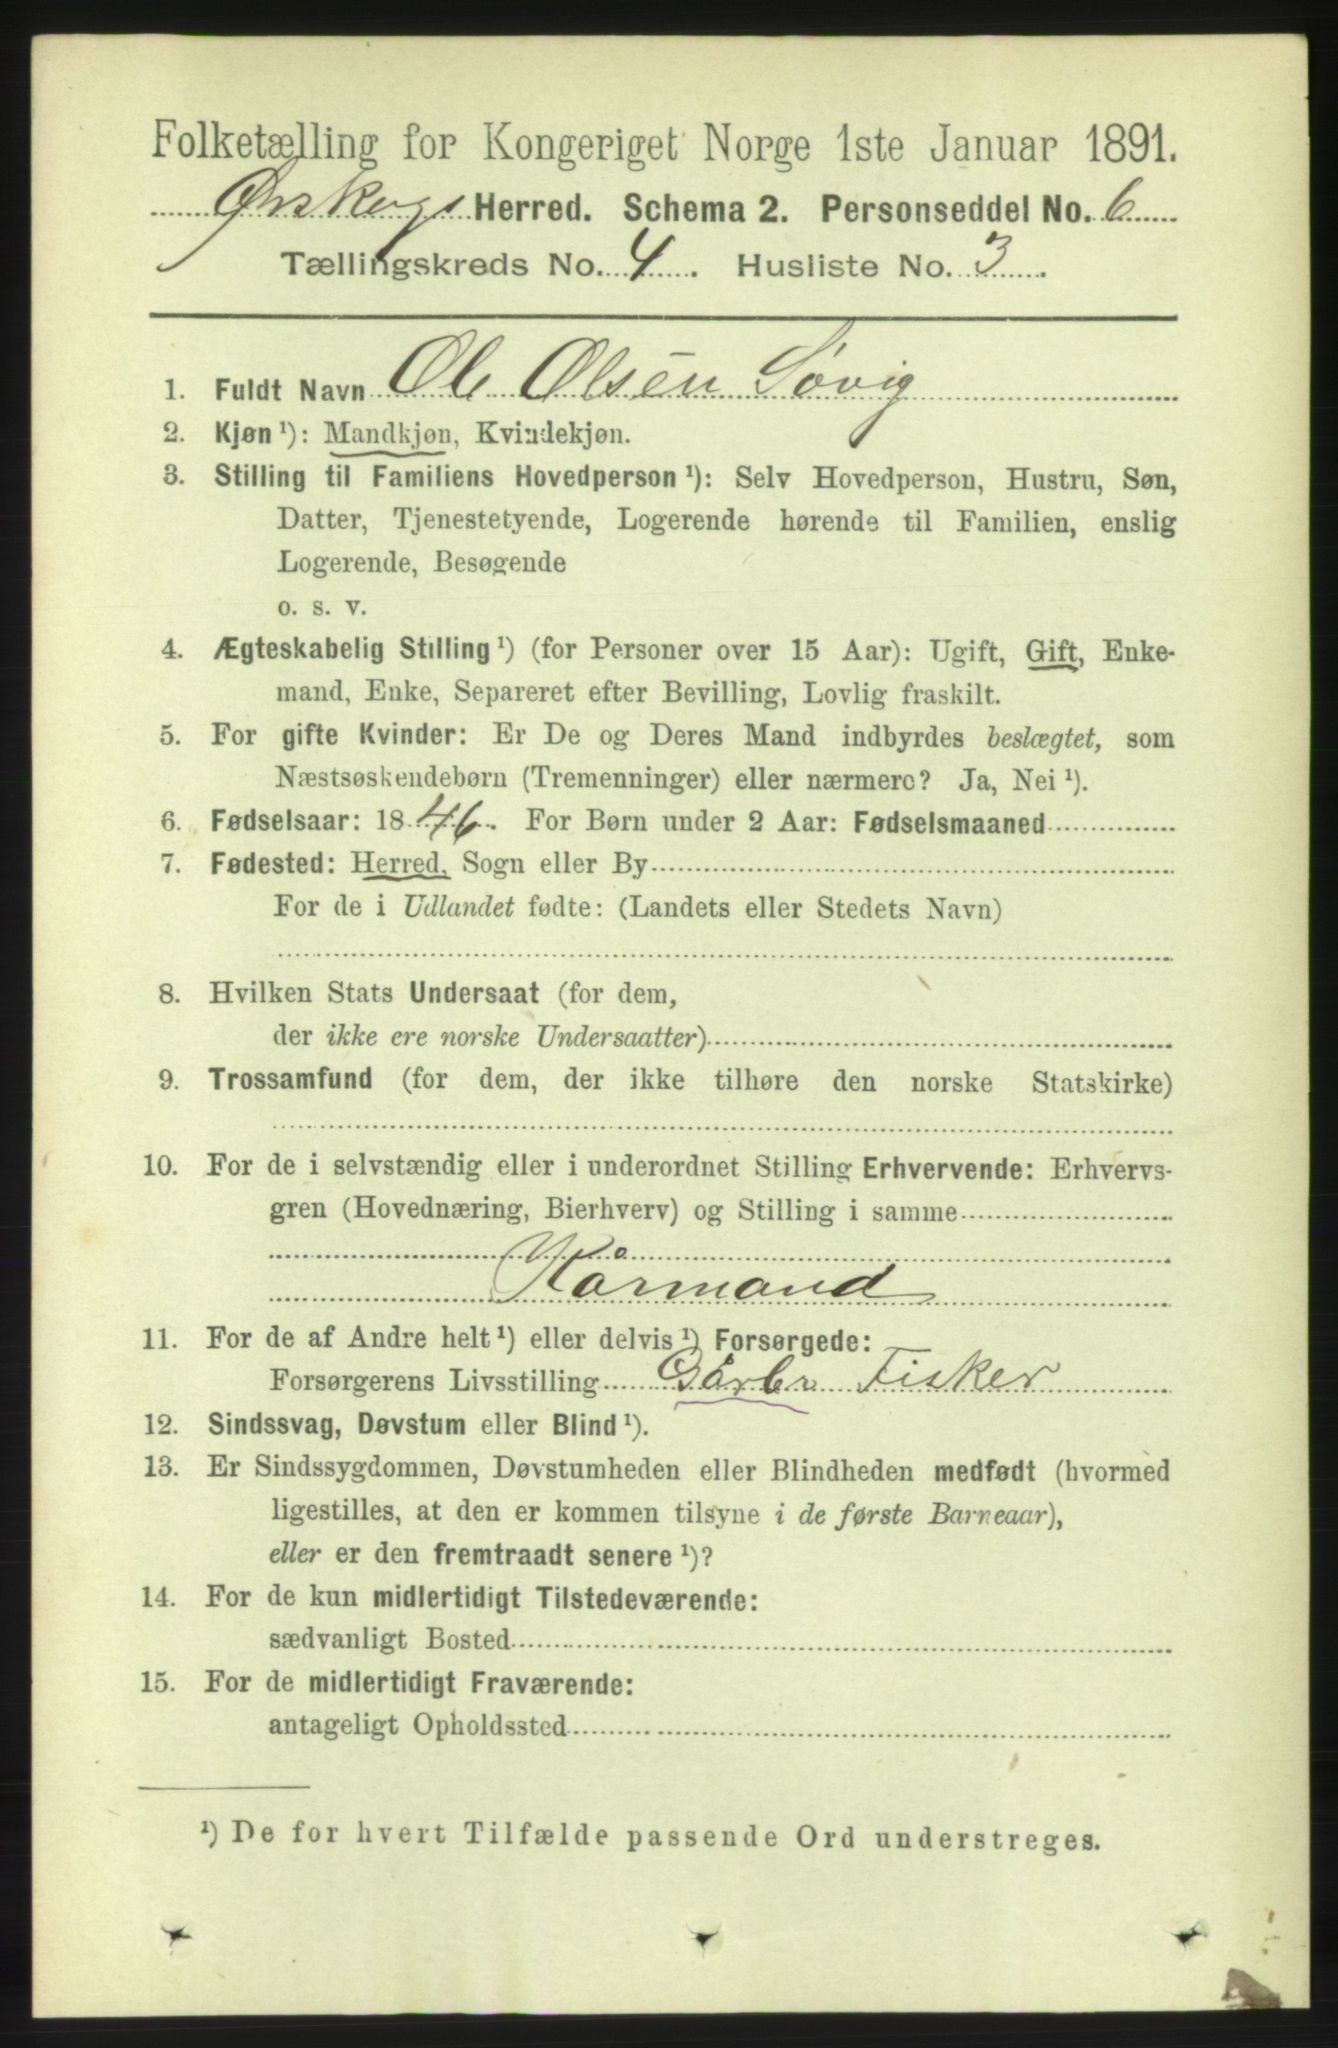 Folketælling for Kongeriget Norge 1ste Januar 1891.
Ørskogs Herred. Schema 2. Personseddel No. 6
Tællingskreds No. 4. Husliste No. 3.
1. Fuldt Navn Ole Olsen Søvig
2. Kjøn ¹): Mandkjøn, Kvindekjøn.
3. Stilling til Familiens Hovedperson ¹): Selv Hovedperson, Hustru, Søn,
Datter, Tjenestetyende, Logerende hørende til Familien, enslig
Logerende, Besøgende
o. s. v.
4. Ægteskabelig Stilling ¹) (for Personer over 15 Aar): Ugift, Gift, Enke-
mand, Enke, Separeret efter Bevilling, Lovlig fraskilt.
5. For gifte Kvinder: Er De og Deres Mand indbyrdes beslægtet, som
Næstsøskendebørn (Tremenninger) eller nærmere? Ja, Nei ¹).
6. Fødselsaar: 1846. For Børn under 2 Aar: Fødselsmaaned
7. Fødested: Herred, Sogn eller By
For de i Udlandet fødte: (Landets eller Stedets Navn)
8. Hvilken Stats Undersaat (for dem,
der ikke ere norske Undersaatter)
9. Trossamfund (for dem, der ikke tilhøre den norske Statskirke)
10. For de i selvstændig eller i underordnet Stilling Erhvervende: Erhvervs-
gren (Hovednæring, Bierhverv) og Stilling i samme
Kårmand
11. For de af Andre helt ¹) eller delvis ¹) Forsørgede:
Forsørgerens Livsstilling Gårbr Fisker
12. Sindssvag, Døvstum eller Blind ¹).
13. Er Sindssygdommen, Døvstumheden eller Blindheden medfødt (hvormed
ligestilles, at den er kommen tilsyne i de første Barneaar),
eller er den fremtraadt senere ¹)?
14. For de kun midlertidigt Tilstedeværende:
sædvanligt Bosted
15. For de midlertidigt Fraværende:
antageligt Opholdssted
¹) De for hvert Tilfælde passende Ord understreges.